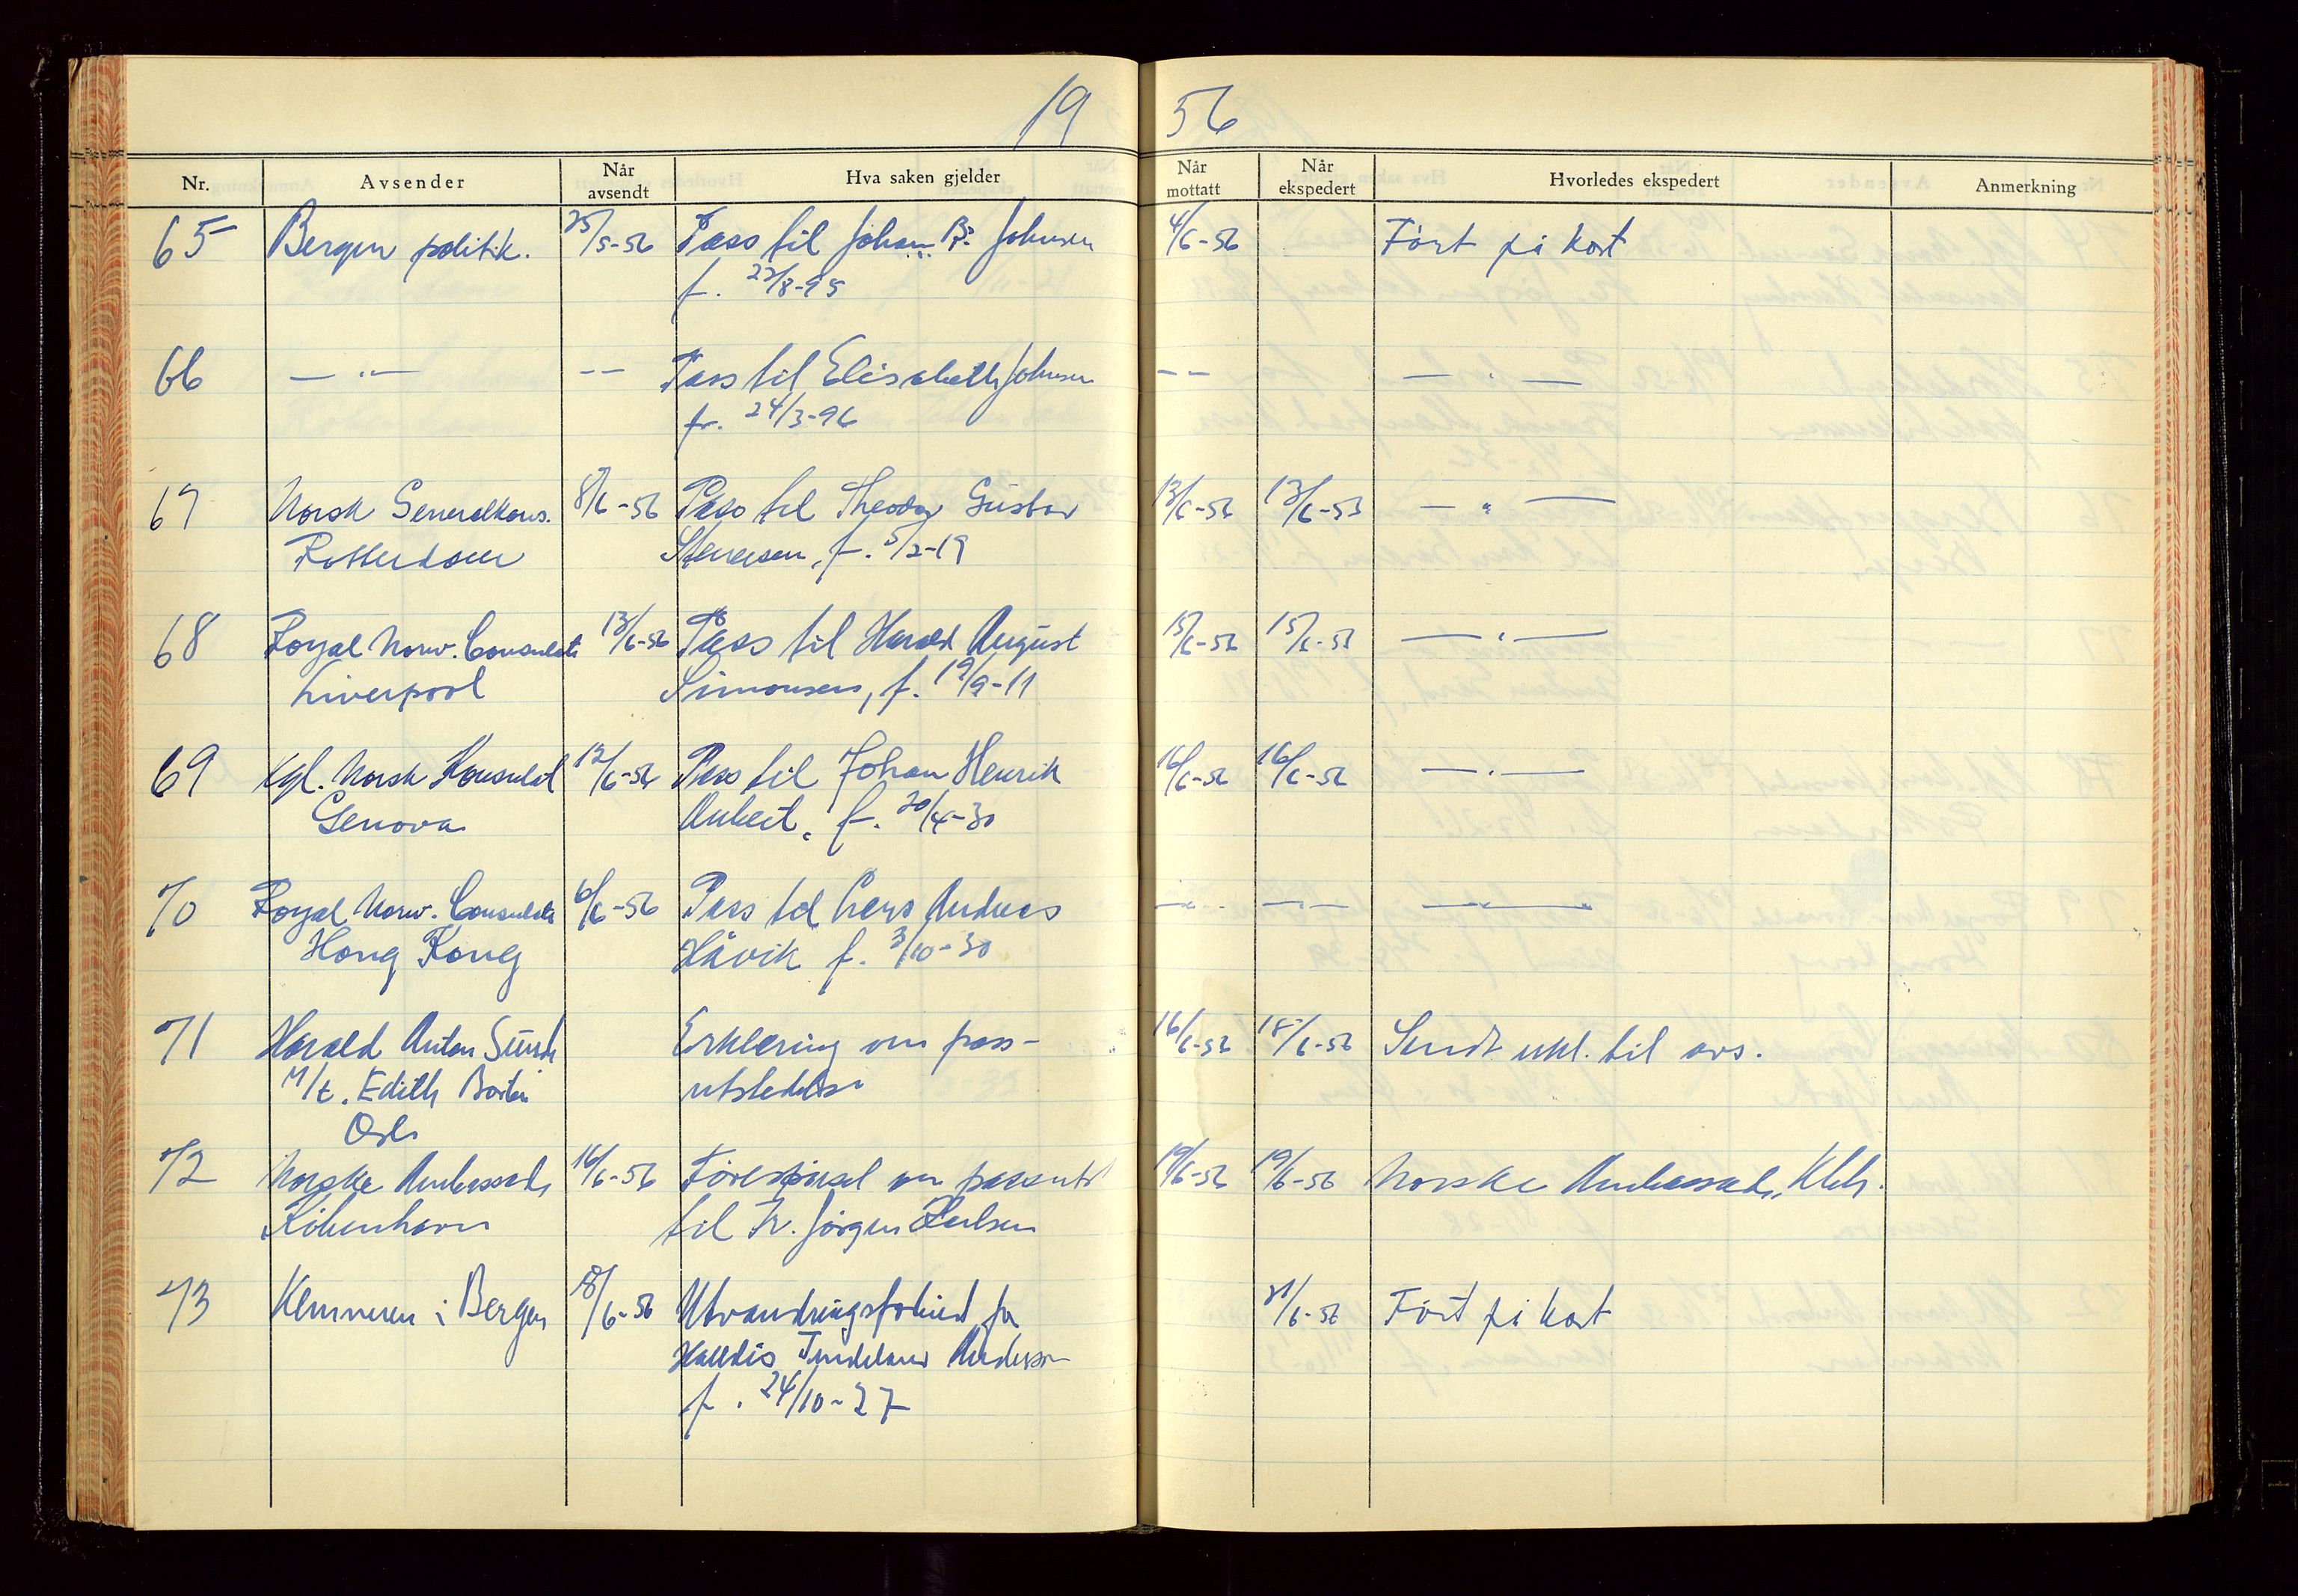 19 56
Nr. Avsender Når avsendt Hva saken gjelder Når mottatt Når ekspedert Hvorledes ekspedert Anmerkning
65 Bergen politik. 25/5-56 Pass til Johan B. Johnsen 4/6-56 Ført på kort
f. 23/8-95
66 — " — -- Pass til Elisabeth Johnsen -- — " —
fr. 24/3-96
67 Norsk Generalkons. 8/6-56 Pass til Theodor Gustav 13/6-56 13/6-53 — " —
Rotterdam f. 5/2-19
68 Royal Norw. Consulate 13/6-56 Pass til Harald August 15/6-56 15/6-53 — " —
Liverpool Simonsen, f. 19/9-11
69 Kgl. Norsk Konsulat 12/6-56 Pass til Johan Henrik 16/6-56 16/6-56 — " —
Genova f. 20/4-30
70 Royal Norw. Consulate 6/6-56 Pass til Lars Andreas — " — — " — — " —
Hong Kong Håvik f. 3/10-30
71 Harald Anton Sund Erklæring om pass- 16/6-56 18/6-56 Sendt til avs.
M/t. Edith utstedelse
Oslo
72 Norske Ambassade 16/6-56 Förespörsel om passutst 19/6-56 19/6-56 Norske Ambassade, Kbh.
København til Fr. Jörgen
73 Kemneren i Bergen 18/6-56 for 21/6-56 Ført på kort
Halldis Anderson
f. 24/10-27